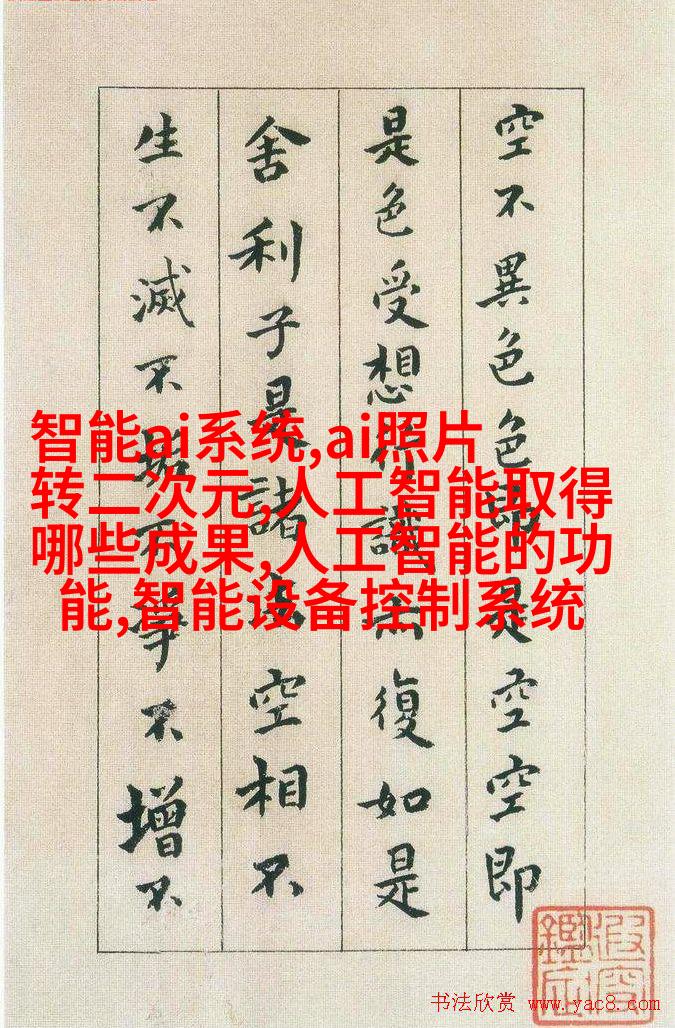 空不異色色即是空空即
是色受想行識亦復如是
舍利子是諸法空相不
生不滅不垢不淨不增不
智能ai系统,ai照片
转二次元,人工智能取得
哪些成果,人工智能的功
能,智能设备控制系统
书法欣赏 www.yac8.com